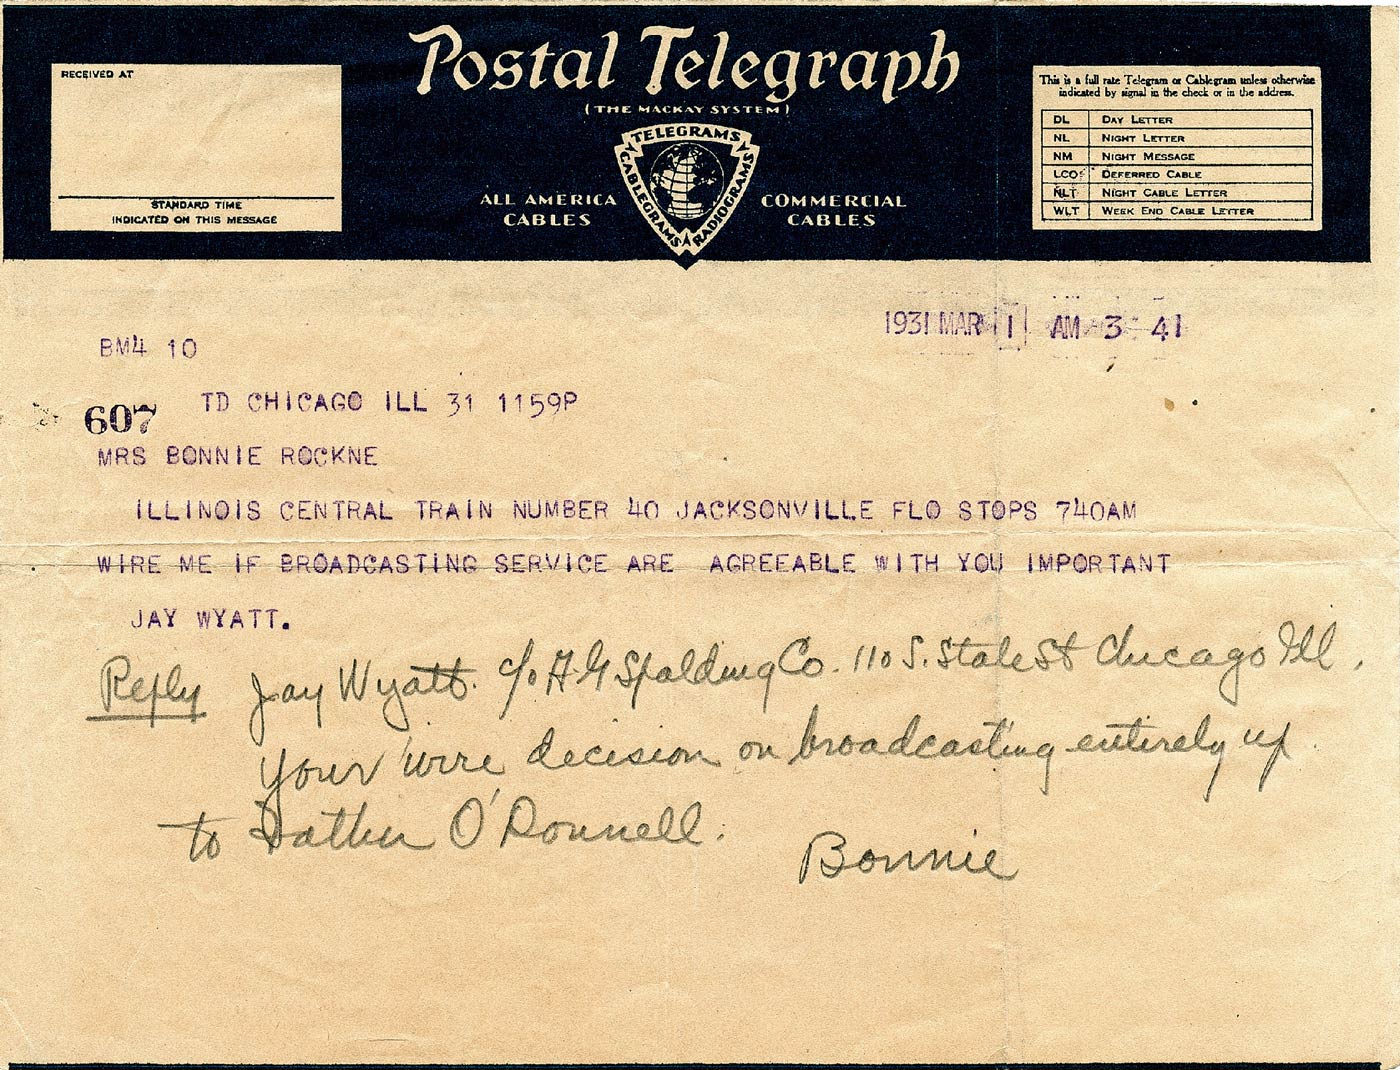 Postal Telegraph
(THE MACKAY SYSTEM)
RECEIVED AT
STANDARD TIME
INDICATED ON THIS MESSAGE
TELEGRAMS
CABLEGRAMS
RADIOGRAMS
ALL AMERICA
CABLES
COMMERCIAL
CABLES
This is a full rate Telegram or Cablegram unless otherwise
indicated by signal in the check or in the address.
DL DAY LETTER
NL NIGHT LETTER
NM NIGHT MESSAGE
LCO DEFERRED CABLE
NLT NIGHT CABLE LETTER
WLT WEEK END CABLE LETTER
1931 MAR 1 AM 3 41
BM4 10
607 TD CHICAGO ILL 31 1159P
MRS BONNIE ROCKNE
ILLINOIS CENTRAL TRAIN NUMBER 40 JACKSONVILLE FLO STOPS 740AM
WIRE ME IF BROADCASTING SERVICE ARE AGREEABLE WITH YOU IMPORTANT
JAY WYATT.
Reply Jay Wyatt. c/o A G Spalding Co. 110 S. State St Chicago Ill.
Your wire decision on broadcasting entirely up
to Father O'Donnell.
Bonnie